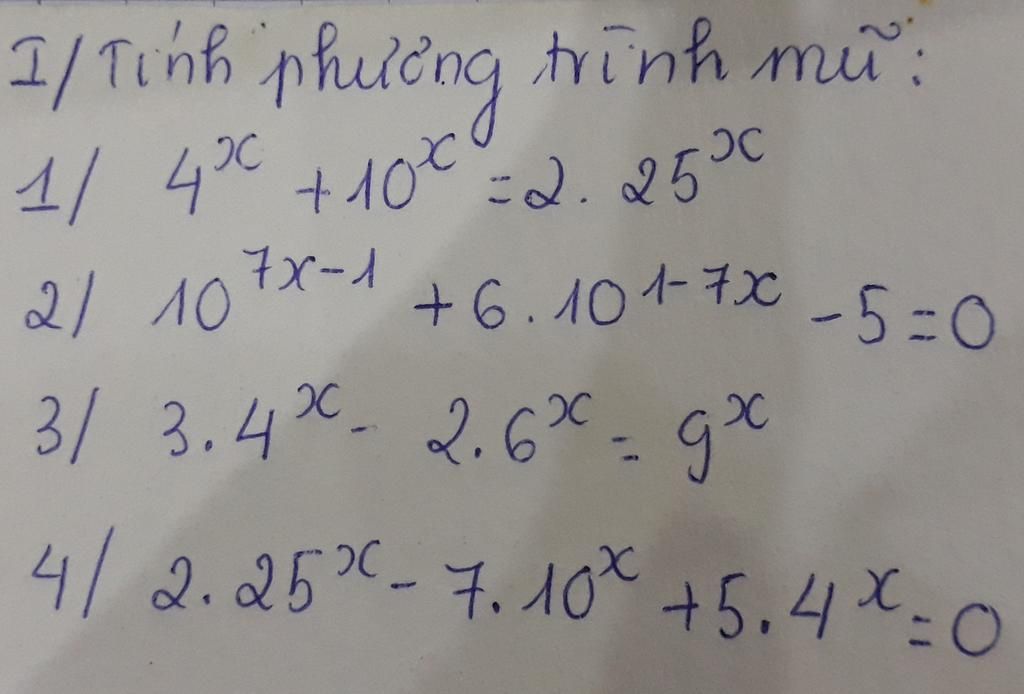 I/ Tính phương trình mũ:
1/ 4^x + 10^x = 2. 25^x
2/ 10^{7x-1} + 6. 10^{1-7x} - 5 = 0
3/ 3. 4^x - 2. 6^x = 9^x
4/ 2. 25^x - 7. 10^x + 5. 4^x = 0